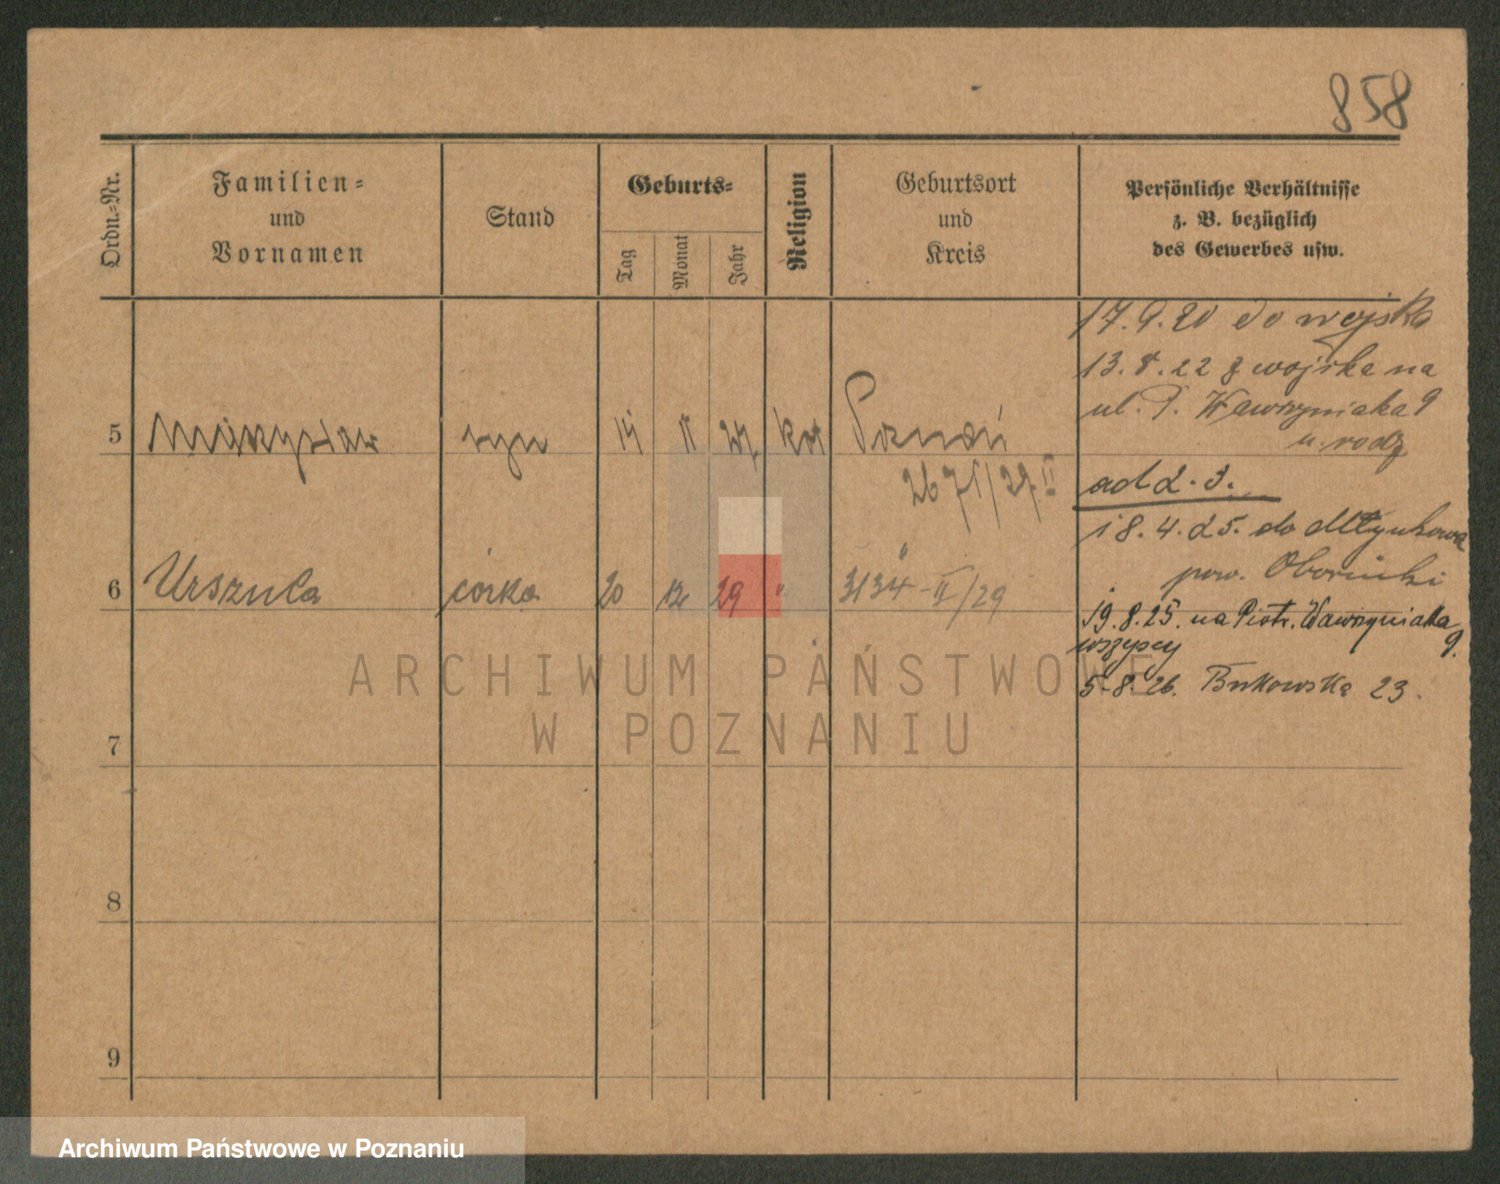 858
Ordn.-Nr.
Familien-
und
Vornamen
Stand
Geburts-
Tag
Monat
Jahr
Religion
Geburtsort
und
Kreis
Persönliche Verhältnisse
z. B. bezüglich
des Gewerbes usw.
17.9.20 do wojska
13.8.22 z wojska na
ul. P. Wawrzyniaka 9
u. rodz
5 Mieczysław syn 14 II 27 kat Poznań
2671/27.II
ad 2.3.
18.4.25. do Młynkowa
pow. Obornicki
6 Urszula córka 20 12 29 " "
3134-II/29
19.8.25. na Piotr. Wawrzyniaka
wszyscy 9.
5.8.26. Bukowska 23.
7
8
9
ARCHIWUM PAŃSTWOWE
W POZNANIU
Archiwum Państwowe w Poznaniu